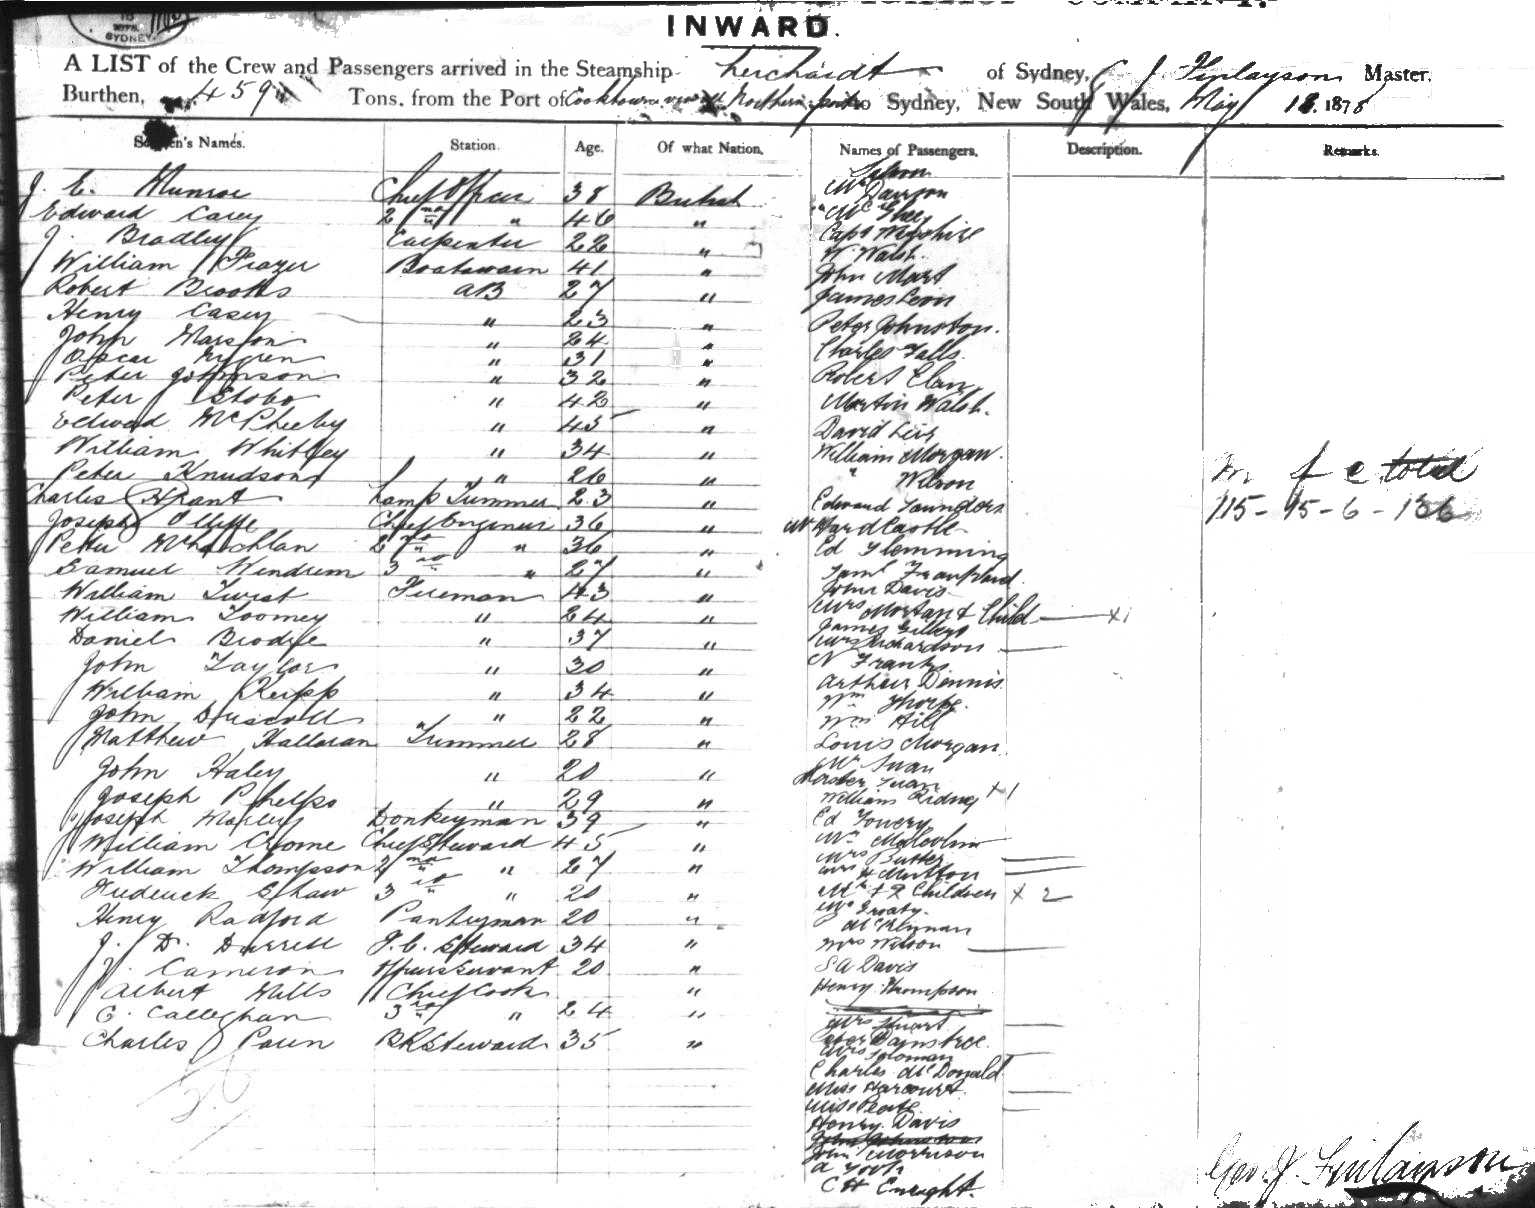 SYDNEY
INWARD.
A LIST of the Crew and Passengers arrived in the Steamship Leichardt of Sydney, Finlayson Master,
Burthen, 459 Tons, from the Port of Cooktown Northern to Sydney, New South Wales, May 18. 1878
Names. Station. Age. Of what Nation. Names of Passengers. Description. Remarks.
J. E. Munroe Chief Officer 38 British
Edward Carey 2nd " 46 "
J. Bradley Carpenter 22 "
William Frazer Boatswain 41 "
Robert Brooks AB 27 "
Henry Casey " 23 "
John Marston " 24 "
Oscar " 31 "
Peter Johnson " 32 "
Peter Stobo " 42 "
Edward McPheeby " 45 "
William Whitley " 34 "
Peter Knudson " 26 "
Charles Grant Lamp Trimmer 23 "
Joseph Olliffe Chief Engineer 36 "
Peter McLachlan 2nd " 36 "
Samuel Windrim 3rd " 27 "
William Twist Fireman 43 "
William Toomey " 24 "
Daniel Brodie " 37 "
John Taylor " 30 "
William Reipp " 34 "
John Driscoll " 22 "
Matthew Halloran Trimmer 28 "
John Haley " 20 "
Joseph Phelps " 29 "
Joseph Morley Donkeyman 39 "
William Crome Chief Steward 45 "
William Thompson 2nd " 27 "
Frederick Shaw 3rd " 20 "
Henry Radford Pantryman 20 "
J. D. Durrell F.C. Steward 34 "
J. Cameron Officers Servant 20 "
Albert Mills Chief Cook "
C. Calleghan 3rd " 24 "
Charles Paun BR Steward 35 "
Mr
Dawson
" McGhee
Capt Wyshire
W Walsh
John Mart
James Leon
Peter Johnston.
Charles Falls.
Robert Clau
Martin Walsh.
David Leis
William Morgan.
" Wilson
Edward Saunders
W Hardcastle
Ed Flemming
Saml
John Davis
Mrs Mortan & Child x1
James Gilbert
Mrs Richardson
N Franks.
Arthur Dennis
Wm Thorpe.
Wm Hill
Louis Morgan
Mr Swan
Master Swan x1
William Ridney
Ed Towery
Mr Malcolm
Mrs Butter
Mrs H Mutton
Mr & 2 Children x 2
Mr Troaty.
McKennan
Mrs Wilson
S A Davis
Henry Thompson
Mrs Stuart
Peter Dainstree
Mrs Soloman
Charles McDonald
Miss Harcourt
Miss Peate
Henry Davis
John Johnston
John Morrison
A Tooth
C H Enright.
m f c total
115-15-6-136
Geo. J. Finlayson